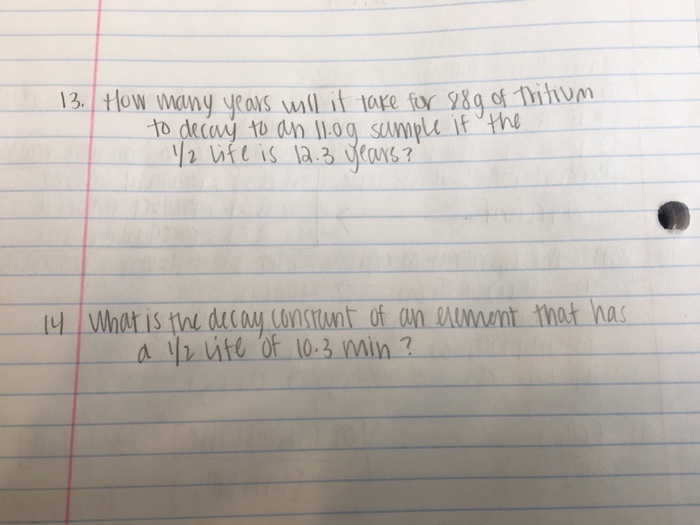 13. How many years will it take for 88g of Tritium
to decay to an 11.0g sample if the
1/2 life is 12.3 years?
14 What is the decay constant of an element that has
a 1/2 life of 10.3 min?